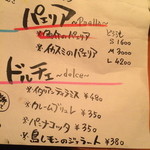 パエリア ~Paella~
※魚介のパエリア
どちらも
S 1600
※イカスミのパエリア
M 3000
L 4200
ドルチェ ~dolce~
※イタリアンティラミス ¥480
※クレームブリュレ ¥350
※パンナコッタ ¥350
※島レモンのジェラート ¥380